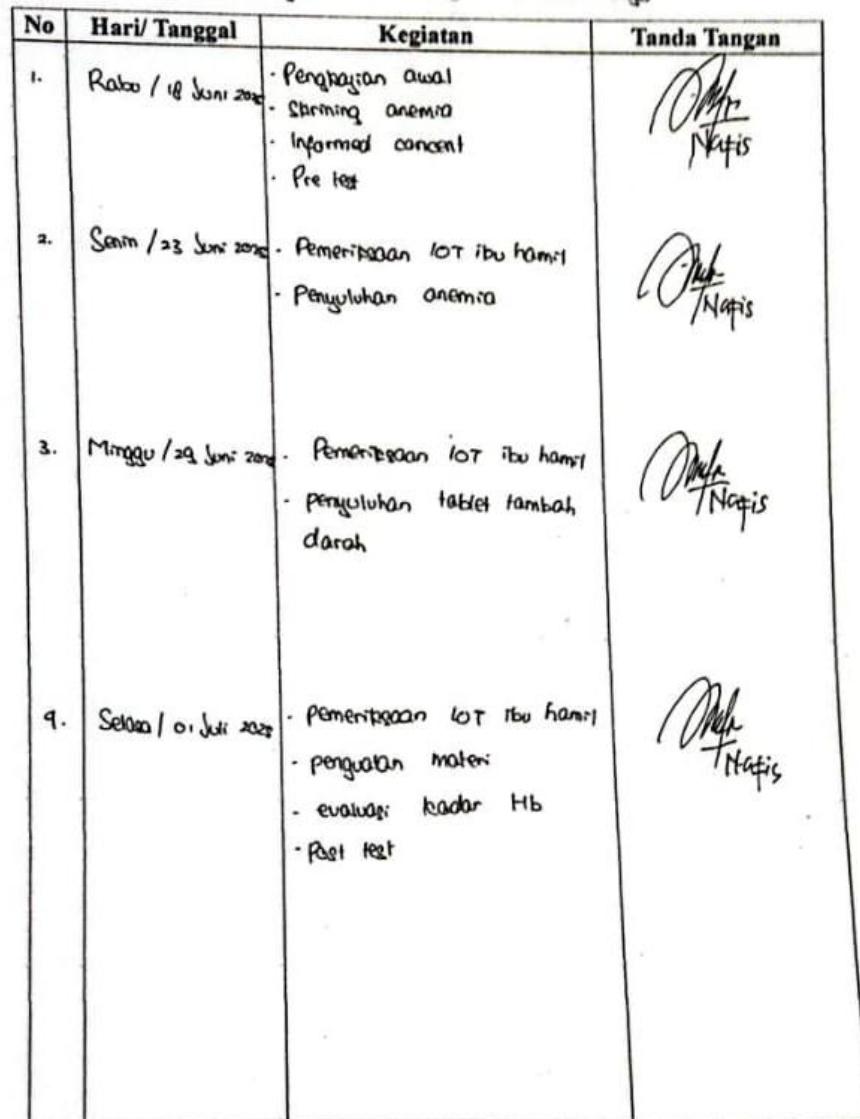 No Hari/ Tanggal Kegiatan Tanda Tangan
1. Rabu / 18 Juni 2025 - Pengkajian awal
- Skrining anemia
- Informed concent
- Pre test
Nafis
2. Senin / 23 Juni 2025 - Pemeriksaan 10T ibu hamil
- Penyuluhan anemia
Nafis
3. Minggu / 29 Juni 2025 - Pemeriksaan 10T ibu hamil
- penyuluhan tablet tambah
darah
Nafis
4. Selasa / 01 Juli 2025 - pemeriksaan 10T ibu hamil
- penguatan materi
- evaluasi kadar Hb
- Post test
Nafis